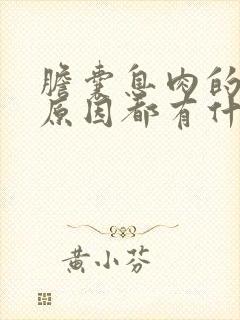 胆囊息肉的
原因都有什
黄小芬